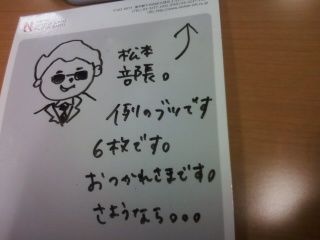 松本
部長。
例のブツです
6枚です。
おつかれさまです。
さようなら。。。